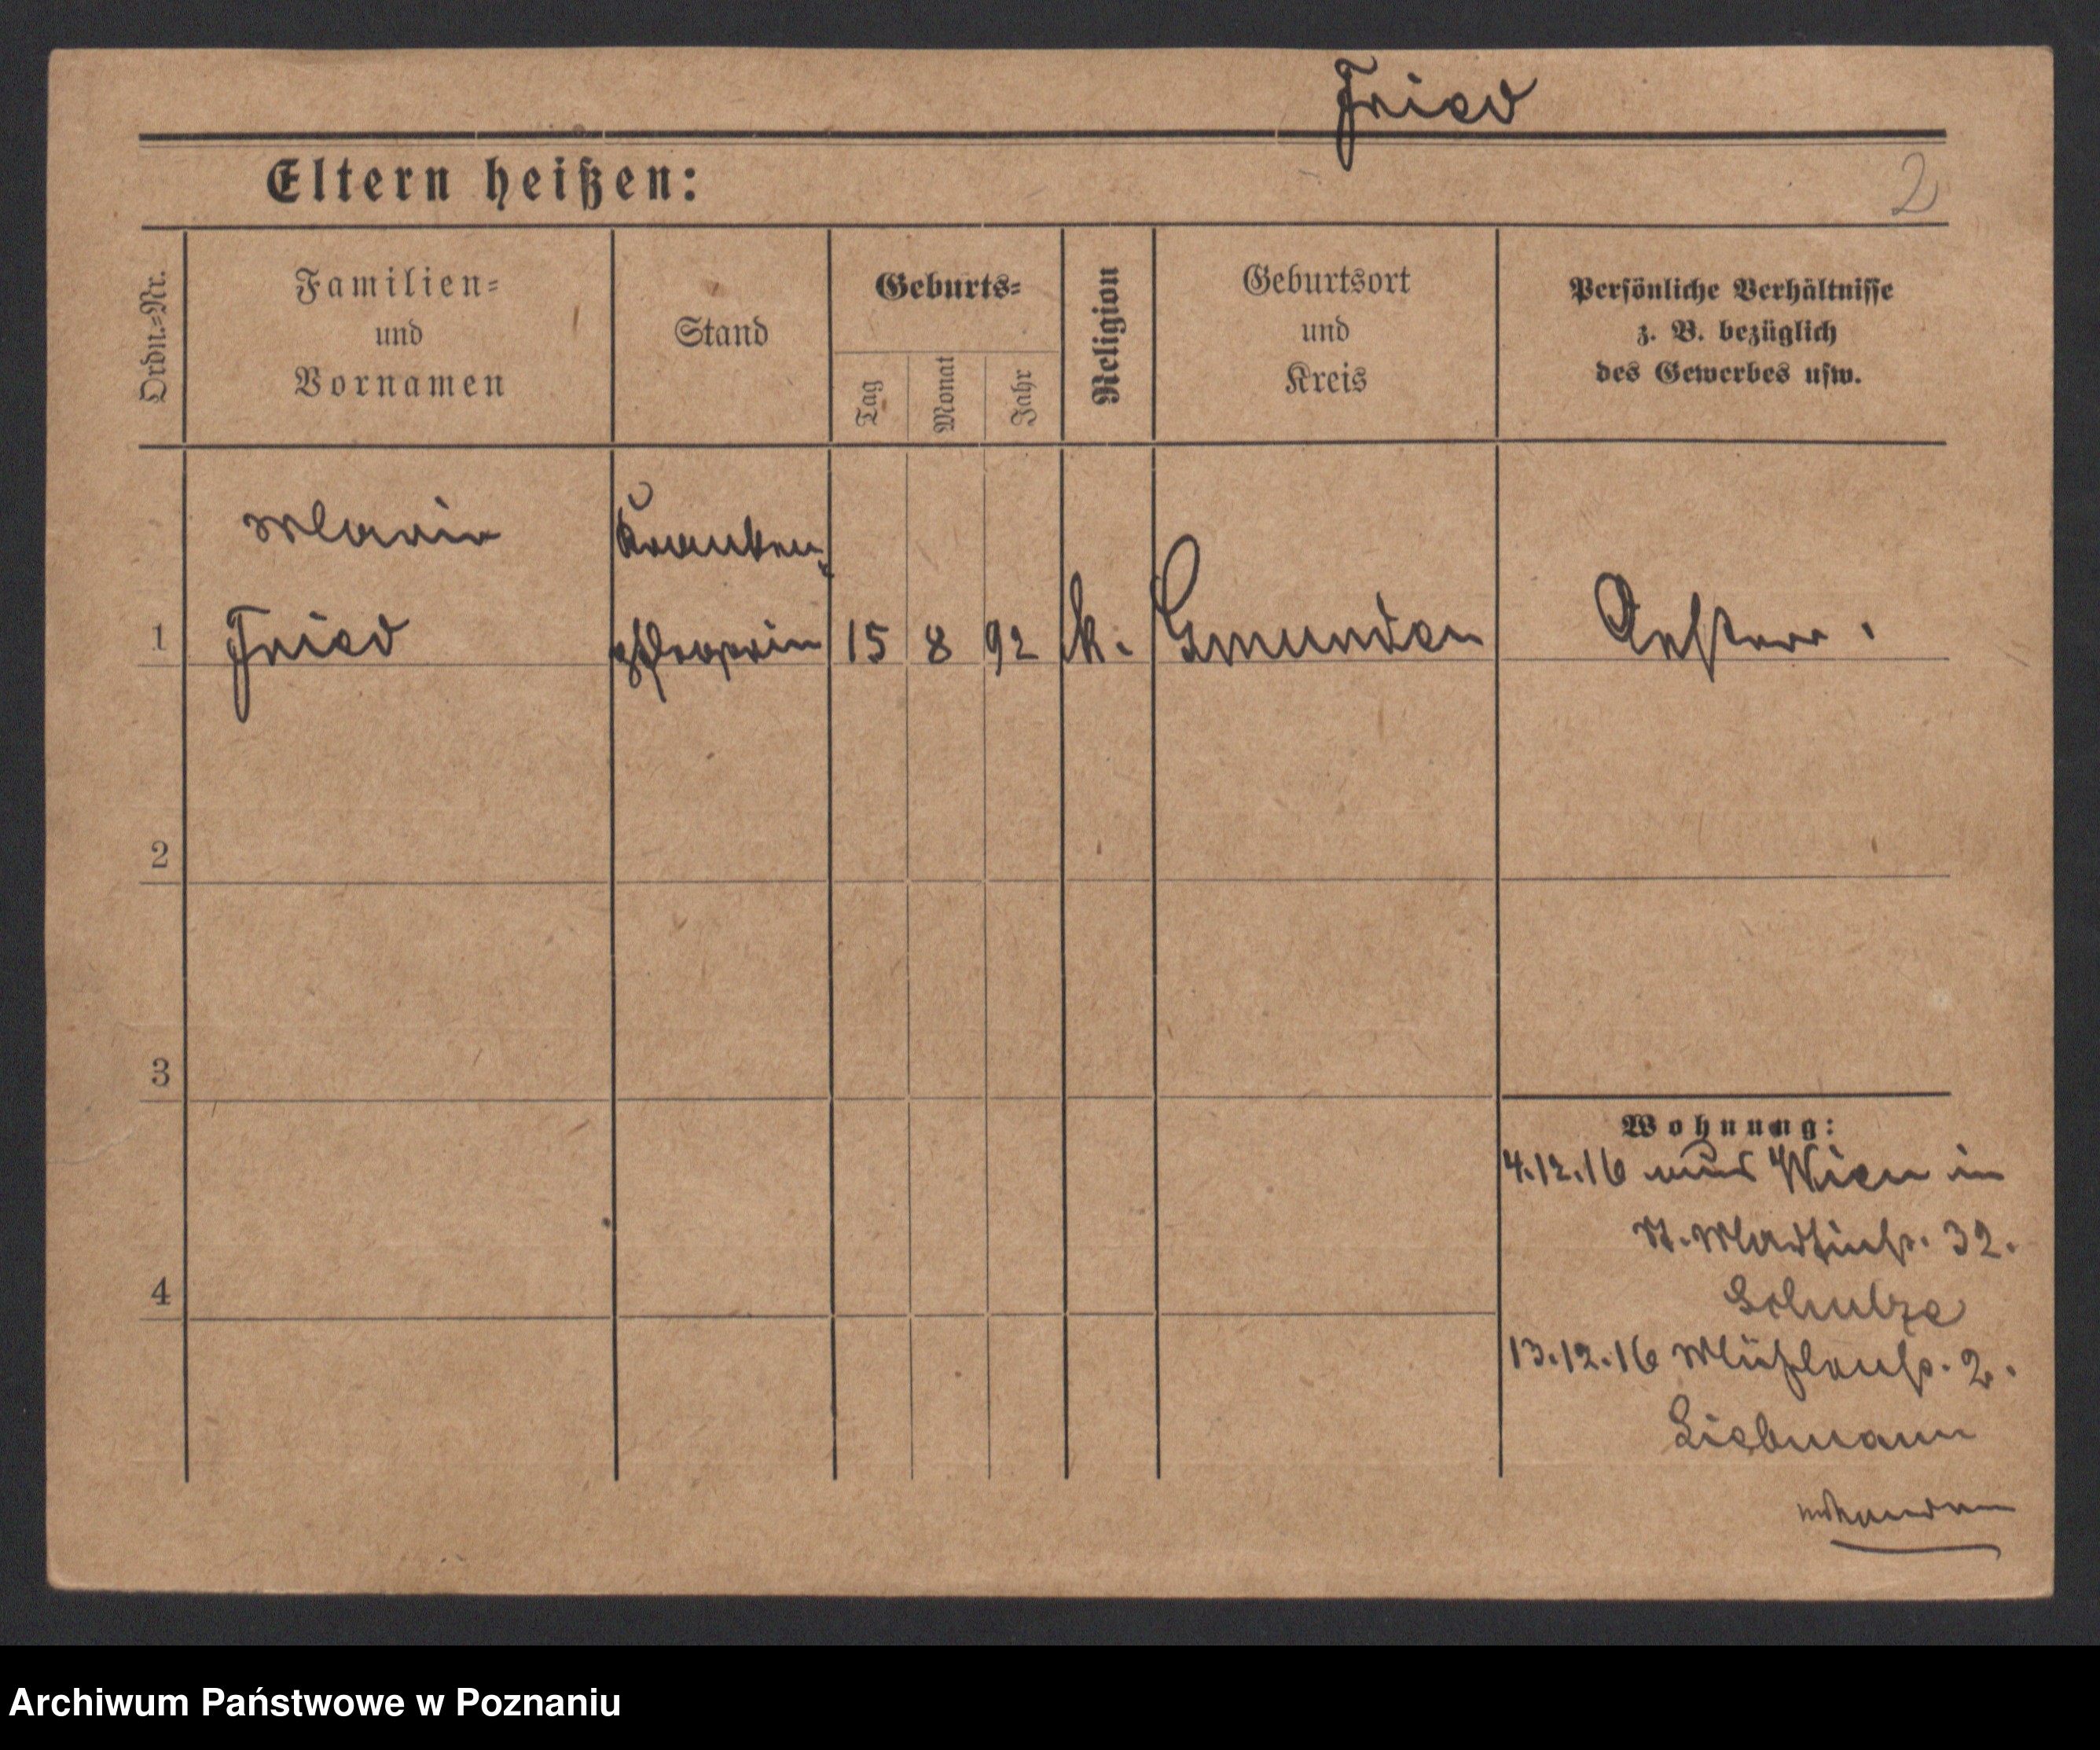 Fried
Eltern heißen:
2
Ordn.-Nr.
Familien-
und
Vornamen
Stand
Geburts-
Tag
Monat
Jahr
Religion
Geburtsort
und
Kreis
Persönliche Verhältnisse
z. B. bezüglich
des Gewerbes usw.
Marie Kranken-
1 Fried pflegerin 15 8 92 k. Gmunden Oesterr.
2
3
4
Wohnung:
4.12.16 aus Wien in
St. Martinstr. 32.
Schulze
13.12.16 Mühlenstr. 2.
Liebmann
Archiwum Państwowe w Poznaniu